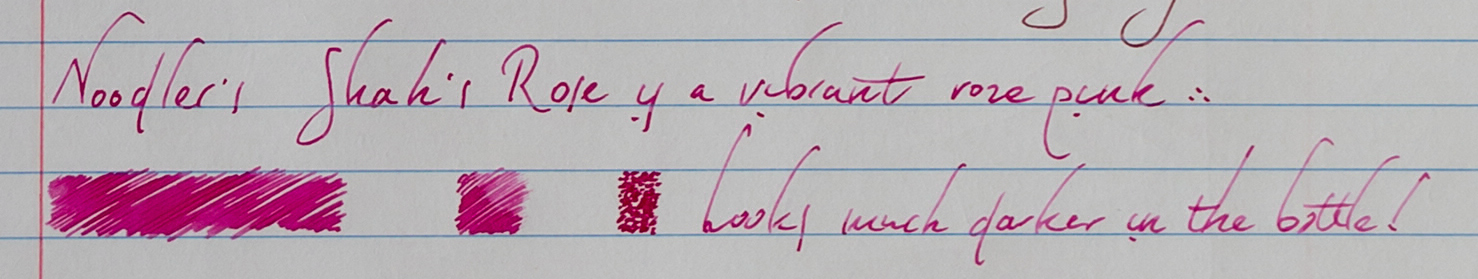 Noodler's Shah's Rose is a vibrant rose pink ∴
Looks much darker in the bottle!